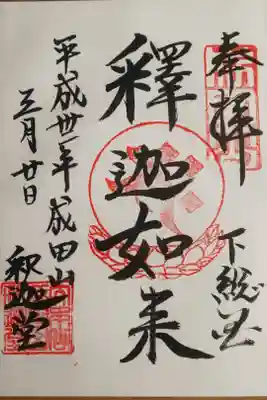 奉拝
下総国
釋迦如来
平成丗一年 成田山
三月廿日
釈迦堂